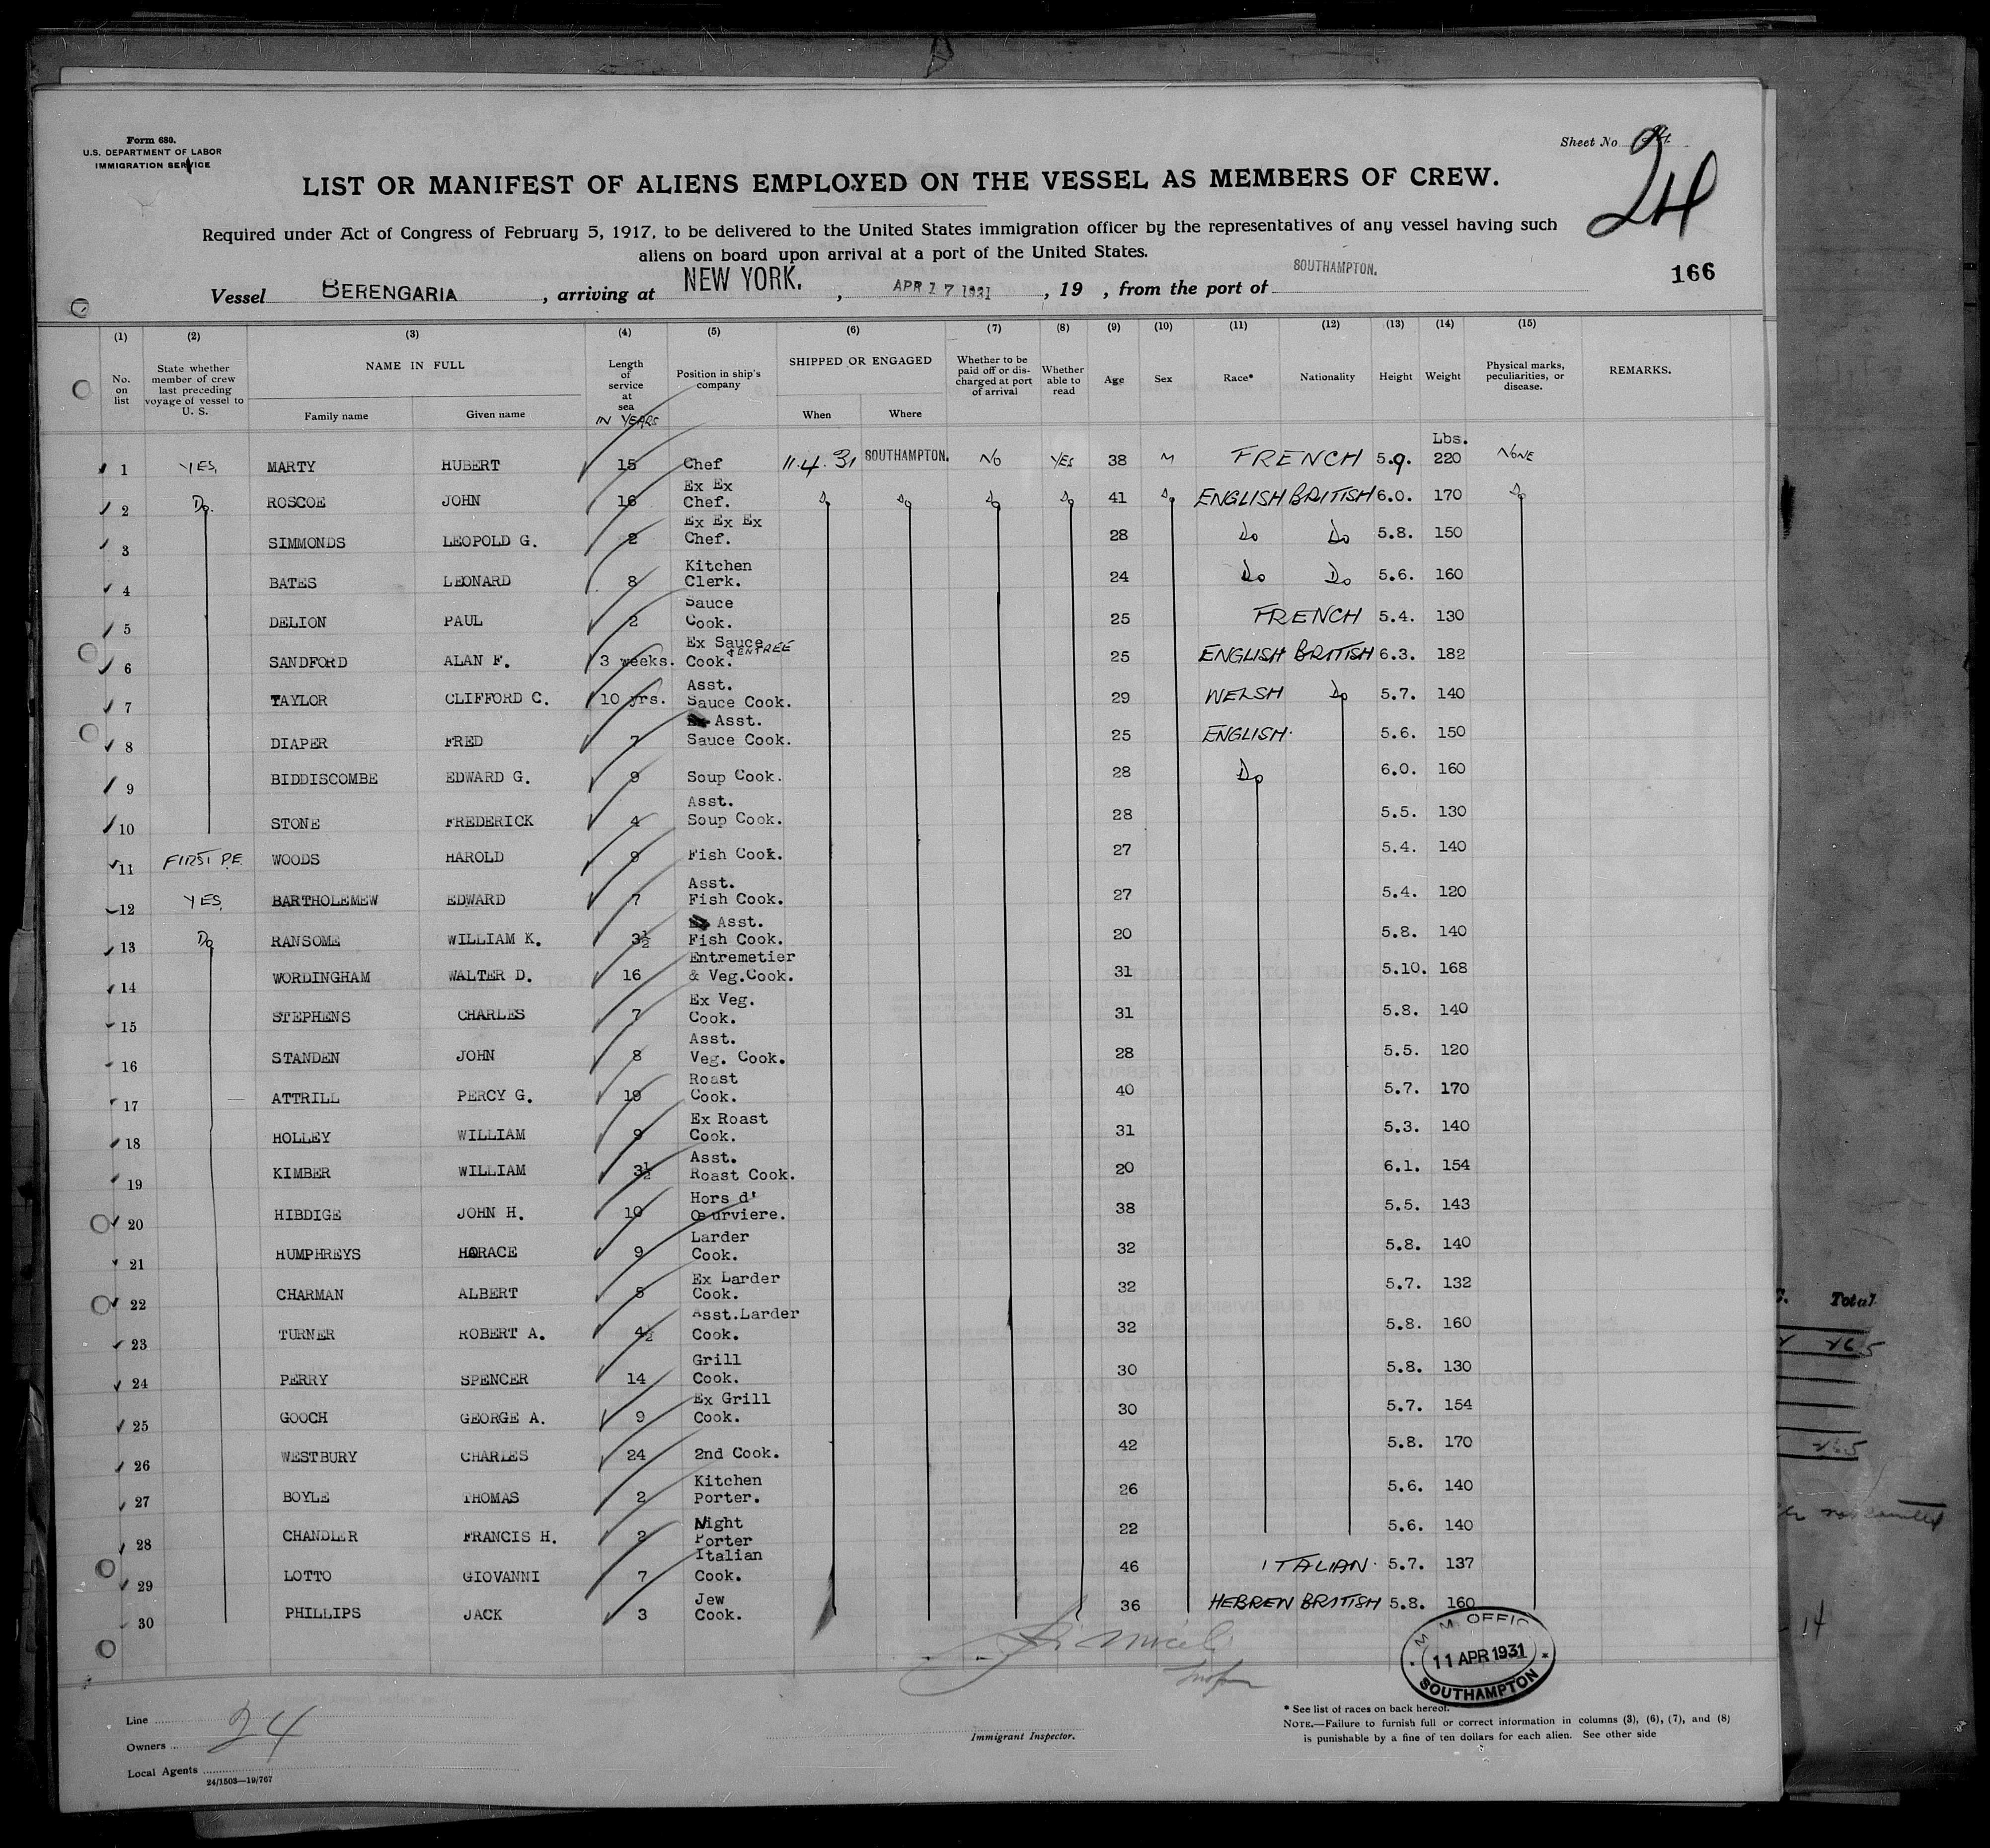 Form 680.
U.S. DEPARTMENT OF LABOR
IMMIGRATION SERVICE
Sheet No. 24
24
LIST OR MANIFEST OF ALIENS EMPLOYED ON THE VESSEL AS MEMBERS OF CREW.
Required under Act of Congress of February 5, 1917, to be delivered to the United States immigration officer by the representatives of any vessel having such
aliens on board upon arrival at a port of the United States.
166
Vessel BERENGARIA, arriving at NEW YORK., APR 17 1931, 19 , from the port of SOUTHAMPTON.
(1) (2) (3) (4) (5) (6) (7) (8) (9) (10) (11) (12) (13) (14) (15)
No. on list
State whether member of crew last preceding voyage of vessel to U. S.
NAME IN FULL
Family name Given name
Length of service at sea
IN YEARS
Position in ship's company
SHIPPED OR ENGAGED
When Where
Whether to be paid off or discharged at port of arrival
Whether able to read
Age Sex Race* Nationality Height Weight
Physical marks, peculiarities, or disease.
REMARKS.
Lbs.
1 YES, MARTY HUBERT 15 Chef 11.4.31 SOUTHAMPTON. NO YES 38 M FRENCH 5.9. 220 NONE
2 Do. ROSCOE JOHN 16 Ex Ex Chef. Do Do Do Do 41 Do ENGLISH BRITISH 6.0. 170 Do
3 SIMMONDS LEOPOLD G. 2 Ex Ex Ex Chef. 28 Do Do 5.8. 150
4 BATES LEONARD 8 Kitchen Clerk. 24 Do Do 5.6. 160
5 DELION PAUL 2 Sauce Cook. 25 FRENCH 5.4. 130
6 SANDFORD ALAN F. 3 weeks. Ex Sauce & ENTREE Cook. 25 ENGLISH BRITISH 6.3. 182
7 TAYLOR CLIFFORD C. 10 yrs. Asst. Sauce Cook. 29 WELSH Do 5.7. 140
8 DIAPER FRED 7 Asst. Sauce Cook. 25 ENGLISH. 5.6. 150
9 BIDDISCOMBE EDWARD G. 9 Soup Cook. 28 Do 6.0. 160
10 STONE FREDERICK 4 Asst. Soup Cook. 28 5.5. 130
11 FIRST P.E. WOODS HAROLD 9 Fish Cook. 27 5.4. 140
12 YES, BARTHOLEMEW EDWARD 7 Asst. Fish Cook. 27 5.4. 120
13 Do RANSOME WILLIAM K. 3½ Asst. Fish Cook. 20 5.8. 140
14 WORDINGHAM WALTER D. 16 Entremetier & Veg.Cook. 31 5.10. 168
15 STEPHENS CHARLES 7 Ex Veg. Cook. 31 5.8. 140
16 STANDEN JOHN 8 Asst. Veg. Cook. 28 5.5. 120
17 ATTRILL PERCY G. 19 Roast Cook. 40 5.7. 170
18 HOLLEY WILLIAM 9 Ex Roast Cook. 31 5.3. 140
19 KIMBER WILLIAM 3½ Asst. Roast Cook. 20 6.1. 154
20 HIBDIGE JOHN H. 10 Hors d' Œurviere. 38 5.5. 143
21 HUMPHREYS HORACE 9 Larder Cook. 32 5.8. 140
22 CHARMAN ALBERT 5 Ex Larder Cook. 32 5.7. 132
23 TURNER ROBERT A. 4½ Asst.Larder Cook. 32 5.8. 160
24 PERRY SPENCER 14 Grill Cook. 30 5.8. 130
25 GOOCH GEORGE A. 9 Ex Grill Cook. 30 5.7. 154
26 WESTBURY CHARLES 24 2nd Cook. 42 5.8. 170
27 BOYLE THOMAS 2 Kitchen Porter. 26 5.6. 140
28 CHANDLER FRANCIS H. 2 Night Porter 22 5.6. 140
29 LOTTO GIOVANNI 7 Italian Cook. 46 ITALIAN. 5.7. 137
30 PHILLIPS JACK 3 Jew Cook. 36 HEBREW BRITISH 5.8. 160
11 APR 1931
SOUTHAMPTON
Line
24
Owners
Local Agents
24/1503—19/767
Immigrant Inspector.
* See list of races on back hereof.
NOTE.—Failure to furnish full or correct information in columns (3), (6), (7), and (8)
is punishable by a fine of ten dollars for each alien. See other side
Total
265
265
14